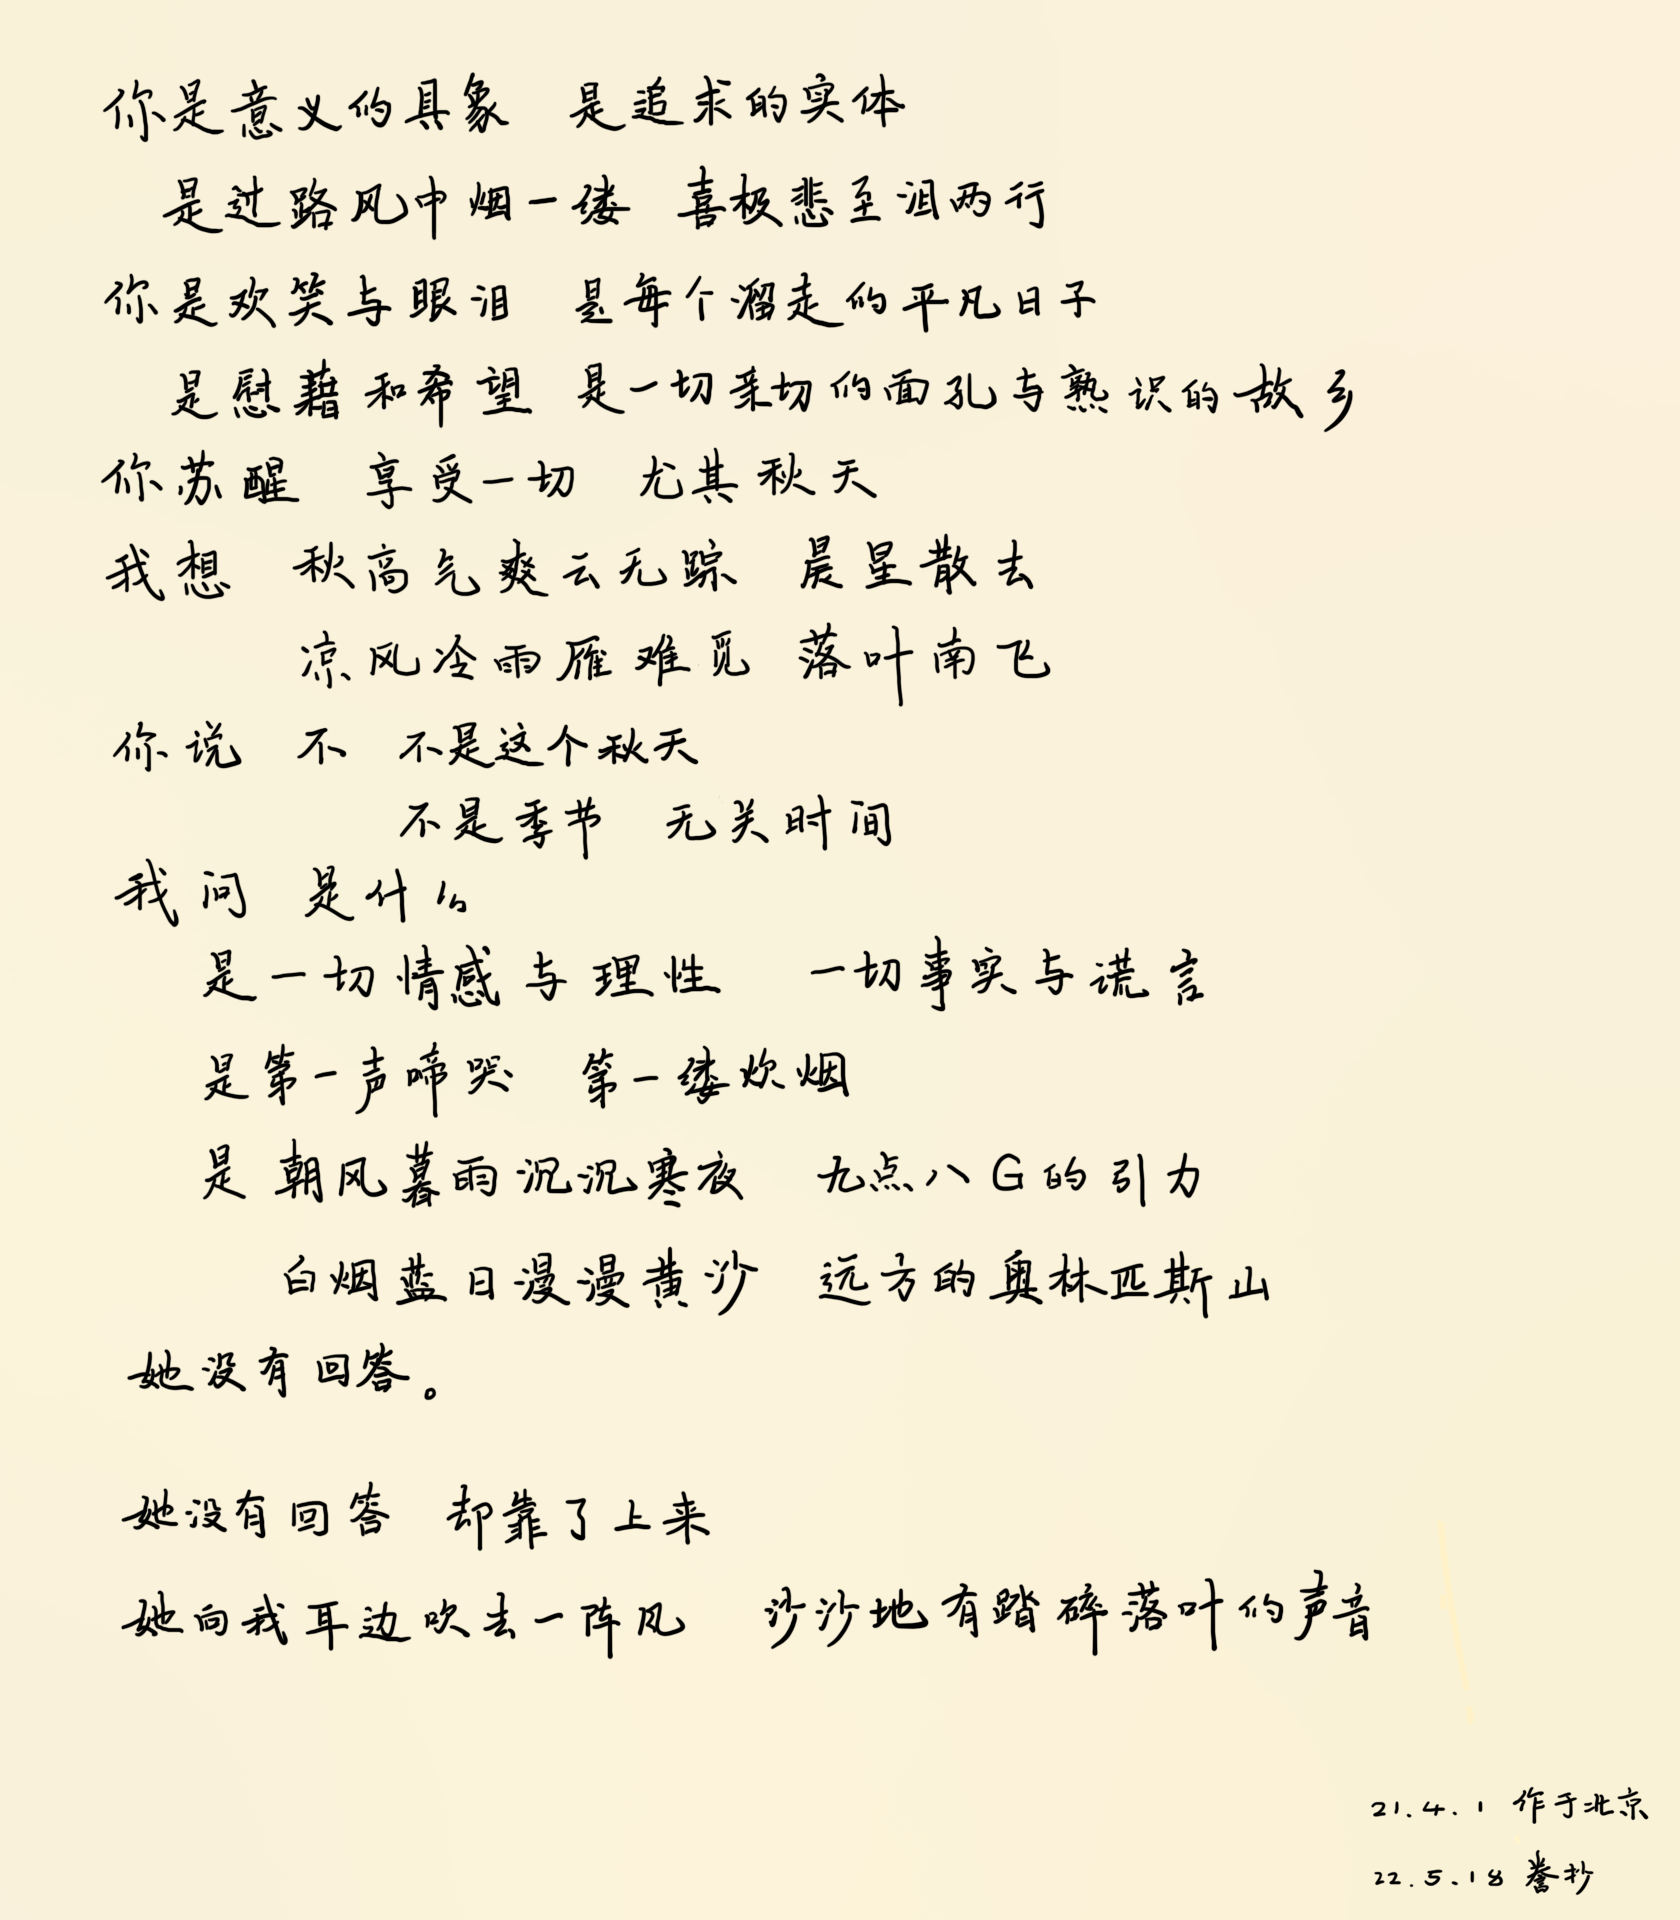 你是意义的具象 是追求的实体
是过路风中烟一缕 喜极悲至泪两行
你是欢笑与眼泪 是每个溜走的平凡日子
是慰藉和希望 是一切亲切的面孔与熟识的故乡
你苏醒 享受一切 尤其秋天
我想 秋高气爽云无踪 晨星散去
凉风冷雨雁难觅 落叶南飞
你说 不 不是这个秋天
不是季节 无关时间
我问 是什么
是一切情感与理性 一切事实与谎言
是第一声啼哭 第一缕炊烟
是朝风暮雨沉沉寒夜 九点八G的引力
白烟蓝日漫漫黄沙 远方的奥林匹斯山
她没有回答。
她没有回答 却靠了上来
她向我耳边吹去一阵风 沙沙地有踏碎落叶的声音
21.4.1 作于北京
22.5.18 誊抄